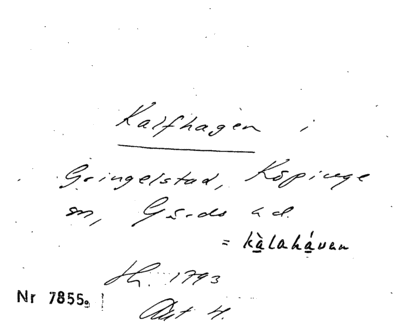 Kalfhagen i
Gringelstad, Köpinge
sn, Gärds hd.
= kàlahávan
Hr. 1793
Akt 4.
Nr 7855